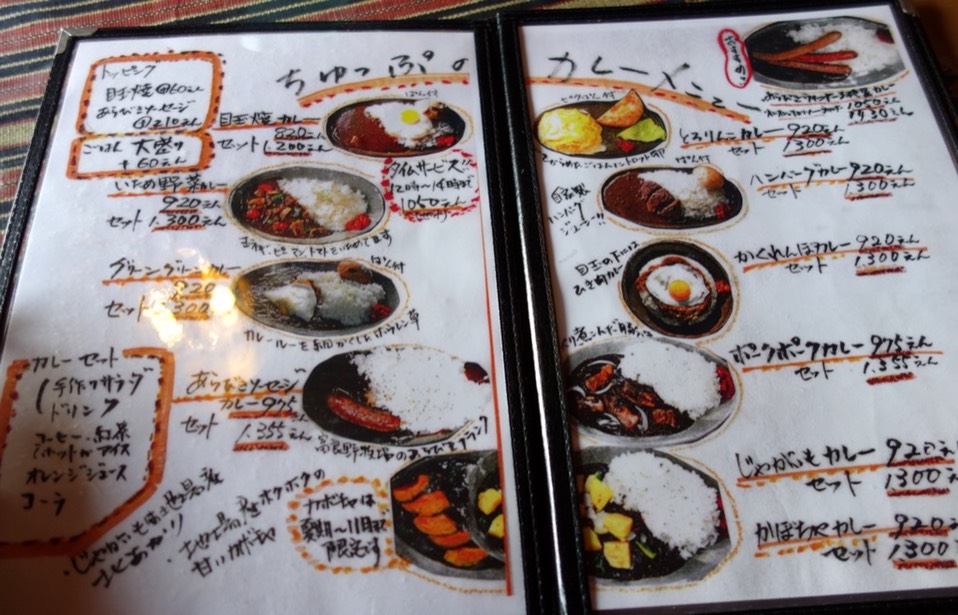 トッピング
目玉焼 @60えん
あらびきソーセージ
@210えん
ごはん 大盛り
+60えん
ちゅっぷの
目玉焼カレー
820えん
セット1,200えん
ぱん付
タイムサービス!!
12時〜14時まで
1050えん
いため野菜カレー
920えん
セット 1,300えん
玉ネギ・ピーマン・トマトをいためてます
グリーングリーンカレー
920
セット 1,300えん
ぱん付
ホウレン草
カレーセット
手作りサラダ
ドリンク
コーヒー・紅茶
ホットかアイス
オレンジジュース
コーラ
あらびきソーセージ
カレー 975
セット 1,355えん
富良野牧場のあらびきフランク
地場産ホクホクの
甘いカボチャ
カボチャは
夏期〜11月まで
限定です
カレーメニュー
1050えん
1430えん
とろりんこカレー 920えん
セット 1300えん
ハンバーグカレー 920えん
セット 1,300えん
ぱん付
自家製
ハンバーグ
ジューシー!!
かくれんぼカレー 920えん
セット 1,300えん
目玉の下には
ひき肉カレー
ポークポークカレー 975えん
セット 1,355えん
じゃがいもカレー 920えん
セット 1300えん
かぼちゃカレー 920えん
セット 1300えん